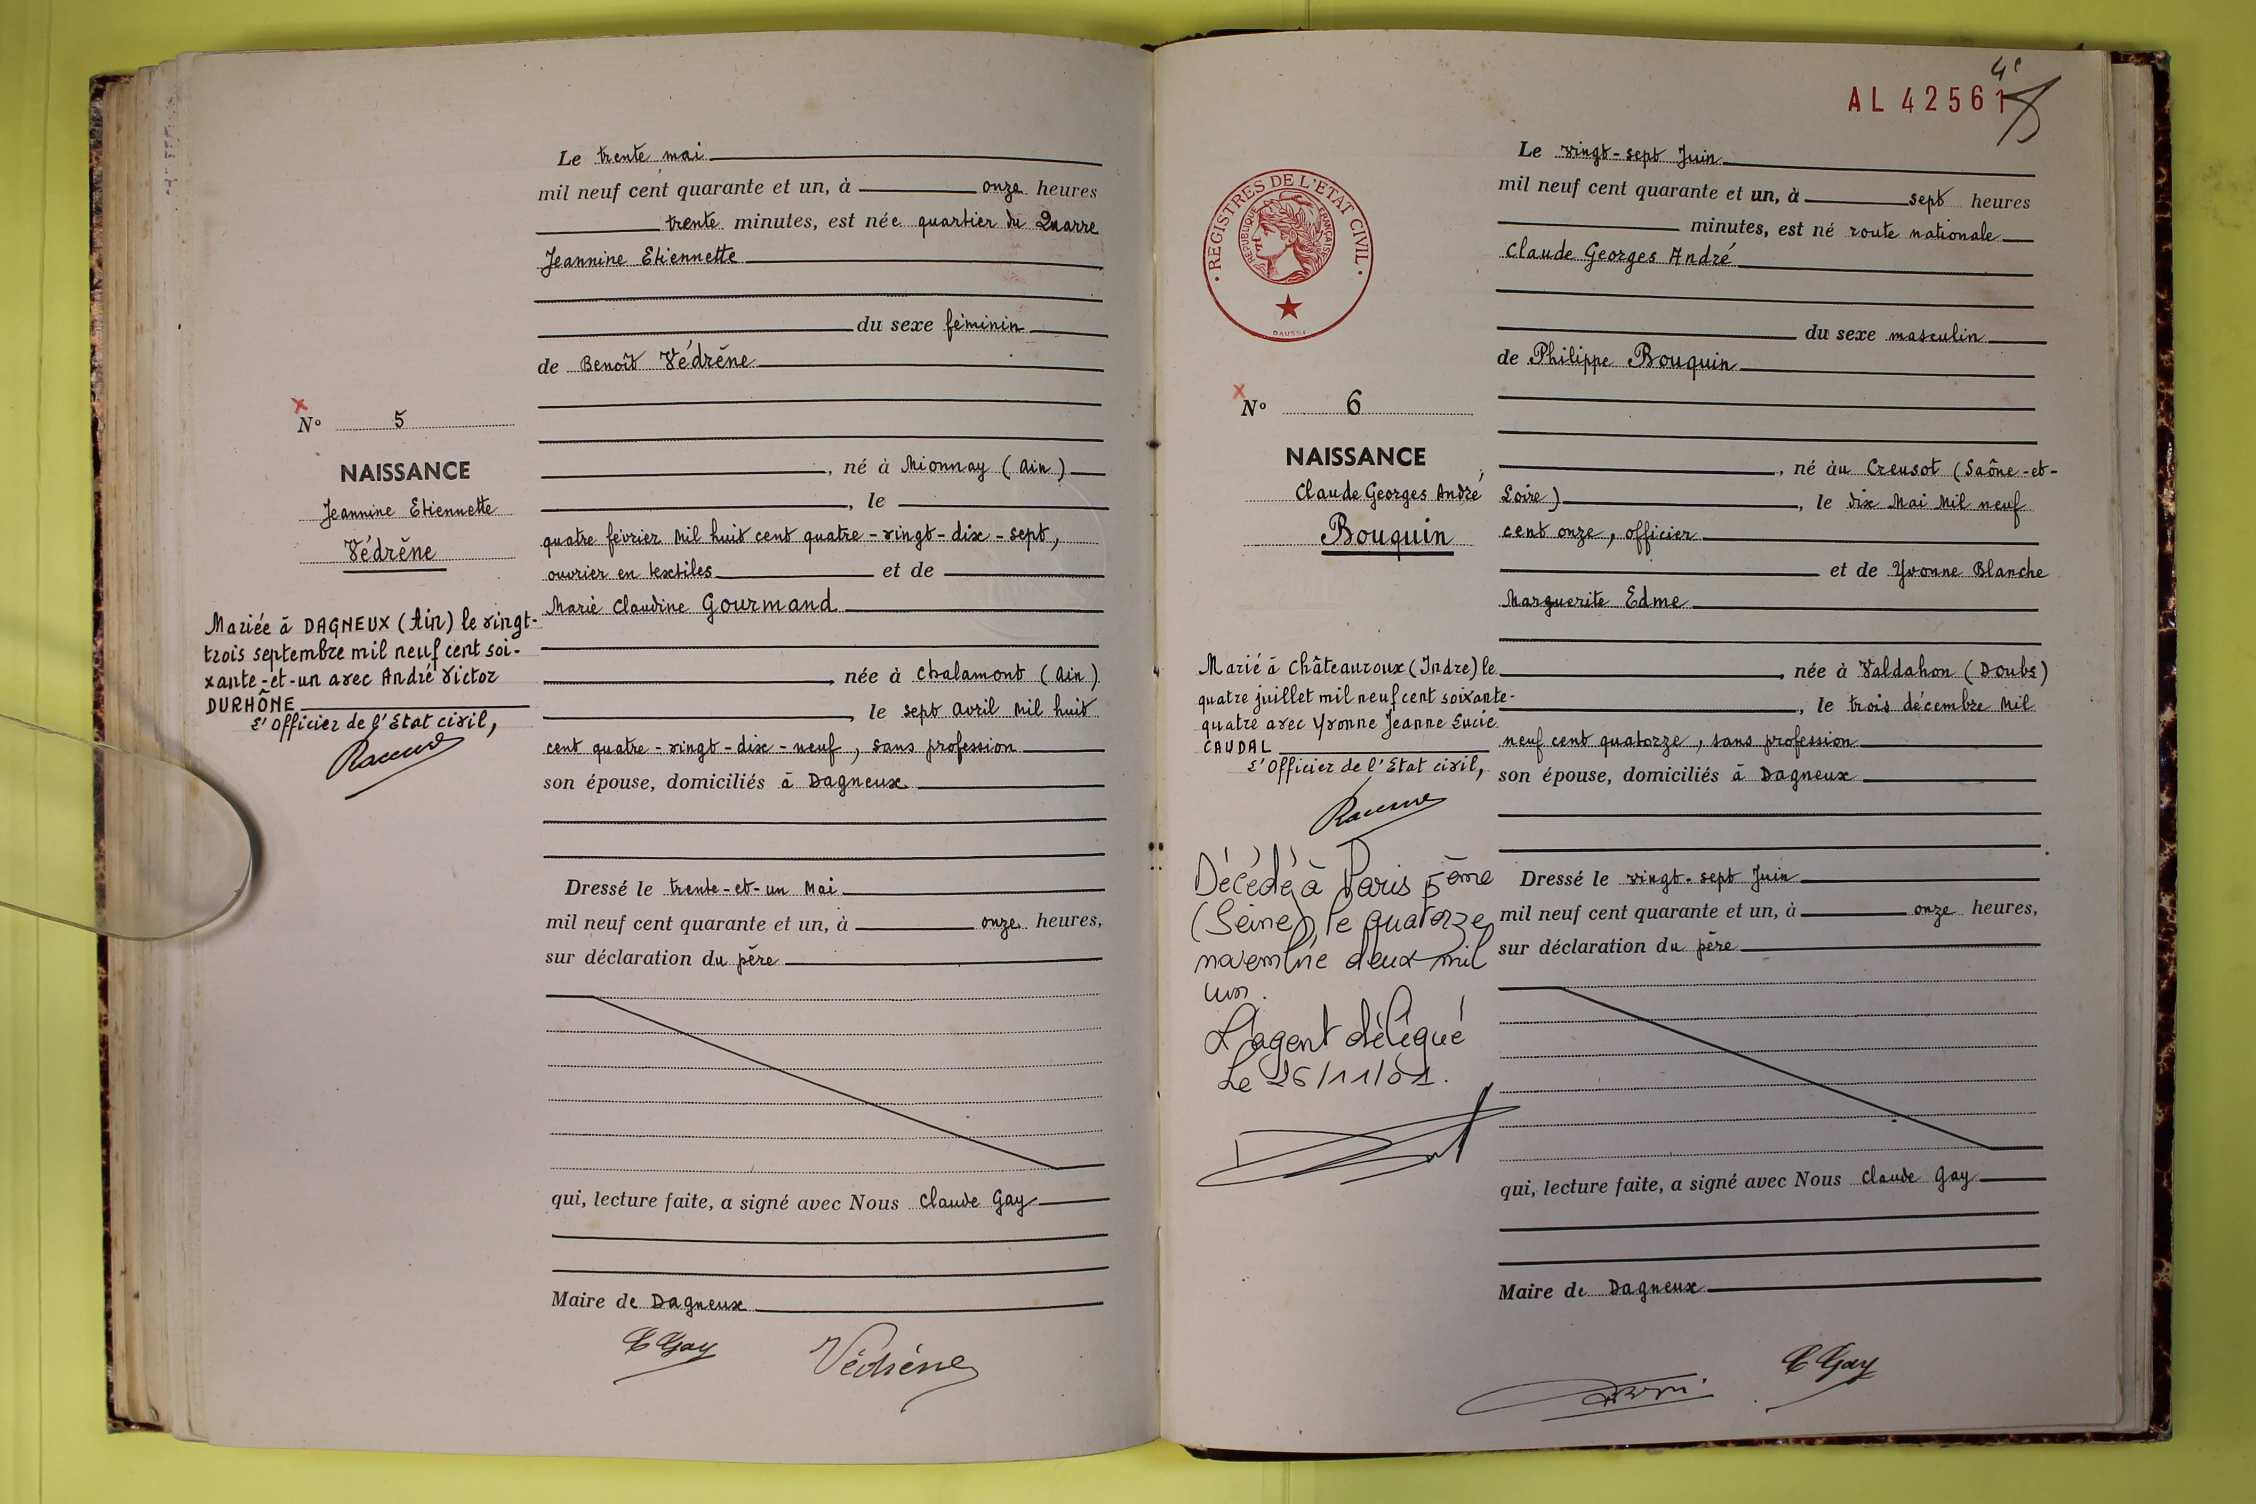 Le trente mai
mil neuf cent quarante et un, à onze heures
trente minutes, est née quartier du Quarre
Jeannine Etiennette
du sexe féminin
de Benoît Védrène
N° 5
NAISSANCE
Jeannine Etiennette
Védrène
, né à Mionnay (Ain)
, le
quatre février mil huit cent quatre-vingt-dix-sept,
ouvrier en textiles et de
Marie Claudine Gourmand
Mariée à DAGNEUX (Ain) le vingt-
trois septembre mil neuf cent soi-
xante-et-un avec André Victor
DURHÔNE
L'Officier de l'Etat civil,
née à Chalamont (Ain)
, le sept avril mil huit
cent quatre-vingt-dix-neuf, sans profession
son épouse, domiciliés à Dagneux
Dressé le trente-et-un Mai
mil neuf cent quarante et un, à onze heures,
sur déclaration du père
qui, lecture faite, a signé avec Nous Claude Gay
Maire de Dagneux
C Gay Védrène
4e
AL 42561
REGISTRES DE L'ETAT CIVIL
REPUBLIQUE FRANÇAISE
Le vingt-sept Juin
mil neuf cent quarante et un, à sept heures
minutes, est né route nationale
Claude Georges André
du sexe masculin
de Philippe Bouquin
N° 6
NAISSANCE
Claude Georges André
Bouquin
, né àu Creusot (Saône-et-
Loire), le dix Mai Mil neuf
cent onze, officier
et de Yvonne Blanche
Marguerite Edme
Marié à Châteauroux (Indre) le
quatre juillet mil neuf cent soixante-
quatre avec Yvonne Jeanne Lucie
CAUDAL
L'Officier de l'Etat civil,
née à Valdahon (Doubs)
, le trois décembre Mil
neuf cent quatorze, sans profession
son épouse, domiciliés à Dagneux
Décédé à Paris 5ème
(Seine), le quatorze
novembre deux mil
un.
L'agent délégué
Le 26/11/01.
Dressé le vingt-sept Juin
mil neuf cent quarante et un, à onze heures,
sur déclaration du père
qui, lecture faite, a signé avec Nous Claude Gay
Maire de Dagneux
C Gay